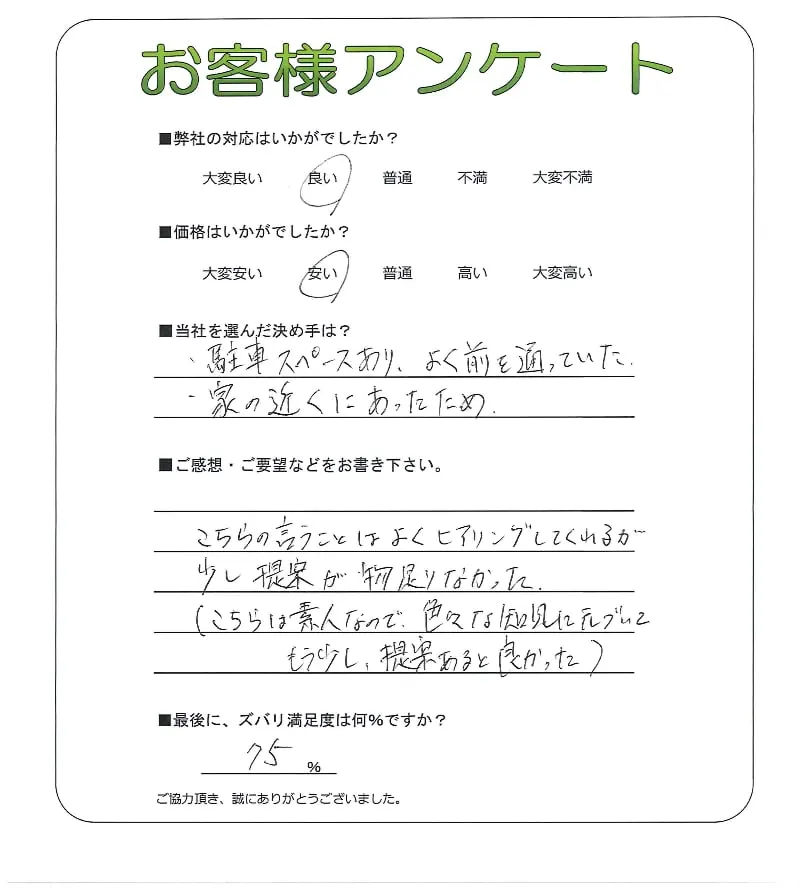 お客様アンケート
■弊社の対応はいかがでしたか？
大変良い 良い 普通 不満 大変不満
■価格はいかがでしたか？
大変安い 安い 普通 高い 大変高い
■当社を選んだ決め手は？
・駐車スペースあり、よく前を通っていた.
・家の近くにあったため.
■ご感想・ご要望などをお書き下さい。
こちらの言うことはよくヒアリングしてくれるが
少し提案が物足りなかった.
(こちらは素人なので、色々な知見に元づいて
もう少し、提案あると良かった)
■最後に、ズバリ満足度は何％ですか？
75 %
ご協力頂き、誠にありがとうございました。